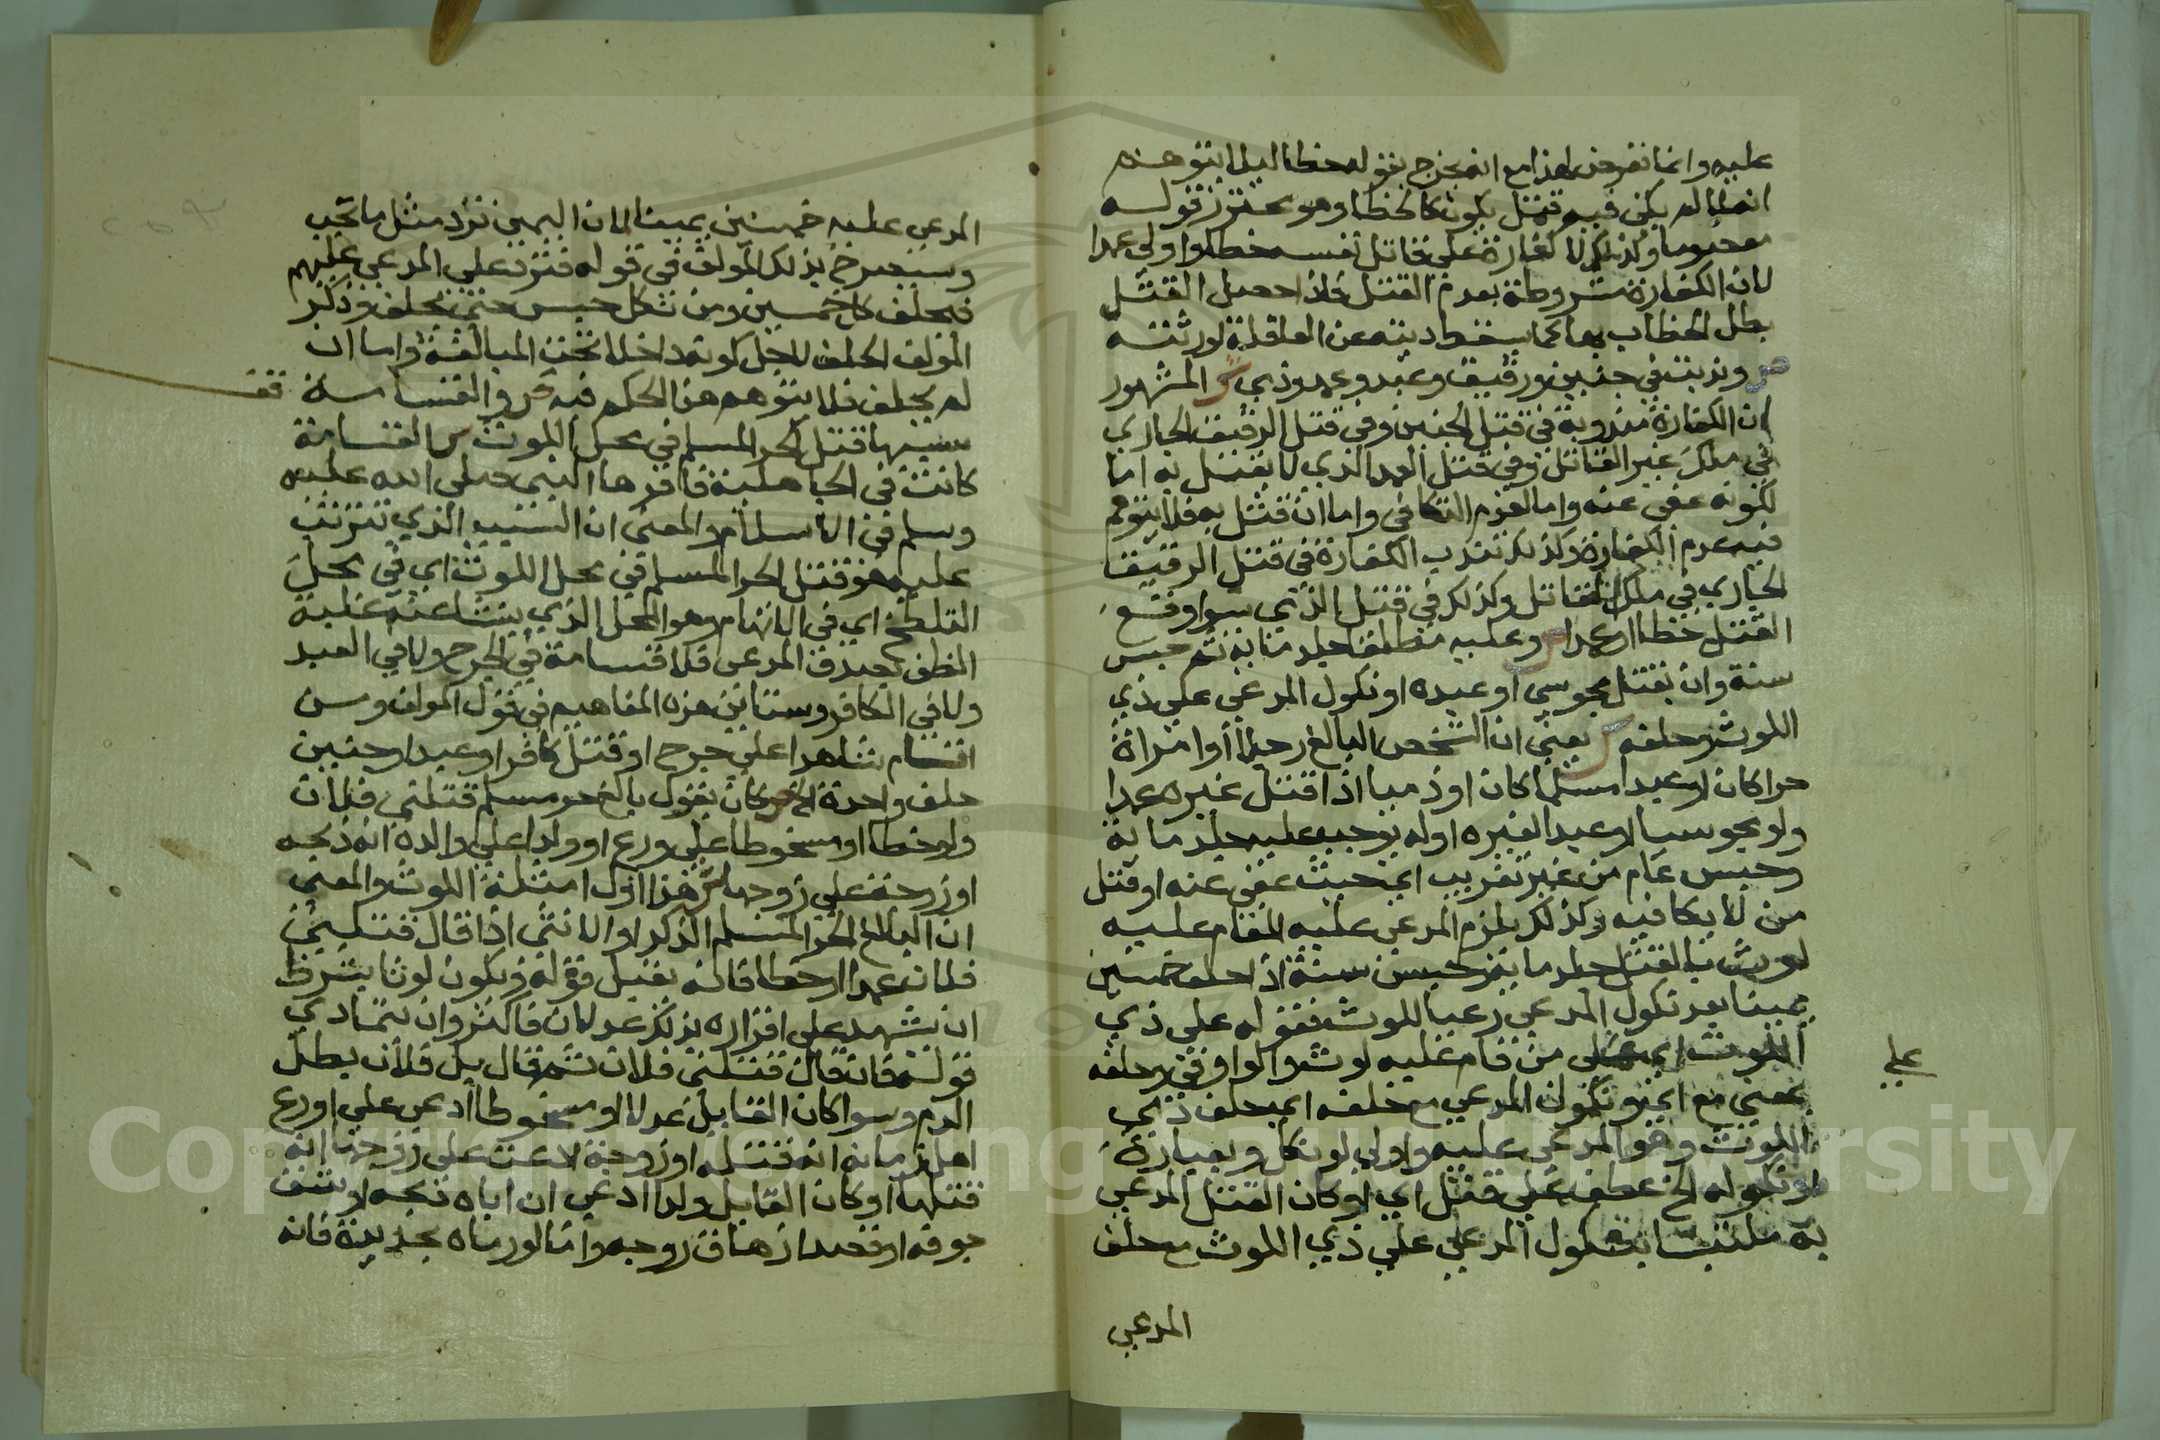 عليه وانما تعرض لهذا مع انه يخرج بقوله خطا ليلا يتوهم
انه لما لم يكن فيه قتل يكون كالخطا وهو محترز قوله
معصوما وكذلك لا كفارة على قاتل نفسه خطا واولى عمدا
لان الكفارة مشروطة بعدم القتل فاذا حصل القتل
بطل الخطاب بها كما يسقط ديته عن العاقلة لورثته
ص وندبت في جنين ورقيق وعبد وعمد وذمي ش المشهور
ان الكفارة مندوبة في قتل الجنين وفي قتل الرقيق الجاري
في ملك غير القاتل وفي قتل العمد الذي لا يقتل به اما
لكونه عفى عنه واما لعدم التكافي واما ان قتل به فلا يتوهم
فيه عدم الكفارة وكذلك تندب الكفارة في قتل الرقيق
الجاري في ملك القاتل وكذلك في قتل الذمي سوا وقع
القتل خطا او عمدا ص وعليه مطلقا جلد ماية ثم حبس
سنة وان بقتل مجوسي او عبده او نكول المدعي على ذي
اللوث وحلفه ش يعني ان الشخص البالغ رجلا او امراة
حرا كان او عبدا مسلما كان او ذميا اذا قتل غيره عمدا
ولو مجوسيا او عبدا لغيره او له يوجب عليه جلد ماية
وحبس عام من غير تغريب اي حيث عفي عنه او قتل
من لا يكافيه وكذلك يلزم المدعى عليه المقام عليه
لوث بالقتل جلد ماية وحبس سنة اذا حلف خمسين
يمينا بعد نكول المدعي رعيا للوث فقوله على ذي
اللوث اي على من قام عليه لوث والواو في وحلفه
على
بمعني مع اي نكول المدعي مع حلفه اي حلف ذي
اللوث وهو المدعى عليه واولى لو نكل وبعبارة
او نكوله الخ عطف على قتل اي او كان القتل المدعي
به ملتبسا بنكول المدعي على ذي اللوث مع حلف
المدعي
المدعي عليه خمسين يمينا لان اليمين ترد مثل ما تجب
وسيصرح بذلك المولف في قوله فترد على المدعي عليهم
فيحلف كل خمسين ومن نكل حبس حتى يحلف وذكر
المولف الحلف لاجل كونه داخلا تحت المبالغة واما ان
لم يحلف فلا يتوهم هذا الحكم فيه ص والقسامة
قف
سببها قتل الحر المسلم في محل اللوث ش القسامة
كانت في الجاهلية فاقرها النبي صلى الله عليه
وسلم في الاسلام والمعنى ان السبب الذي تترتب
عليه هو قتل الحر المسلم في محل اللوث اي في محل
التلطخ اي في الاتهام وهو المحل الذي ينشا عنه غلبة
الظن بصدق المدعى فلا قسامة في الجرح ولا في العبد
ولا في الكافر وستاتي هذه المفاهيم في قول المولف ومن
اقام شاهدا على جرح او قتل كافر او عبد او جنين
حلف واحدة الخ ص كان يقول بالغ حر مسلم قتلني فلان
ولو خطا او مسخوطا على ورع او ولد اعلى والده انه ذبحه
او زوجة على زوجها ش هذا اول امثلة اللوث والمعنى
ان البالغ الحر المسلم الذكر او الانثى اذا قال قتلني
فلان عمدا او خطا فانه يقبل قوله ويكون لوثا بشرط
ان يشهد على اقراره بذلك عدلان فاكثر وان يتمادى
قوله فان قال قتلني فلان ثم قال بل فلان بطل
الدم وسوا كان القايل عدلا او مسخوطا ادعى على اورع
اهل زمانه انه قتله او زوجة ادعت على زوجها انه
قتلها او كان القايل ولدا ادعى ان اباه ذبحه او شق
جوفه او قصد ازهاق روحه واما لو رماه بحديدة فانه